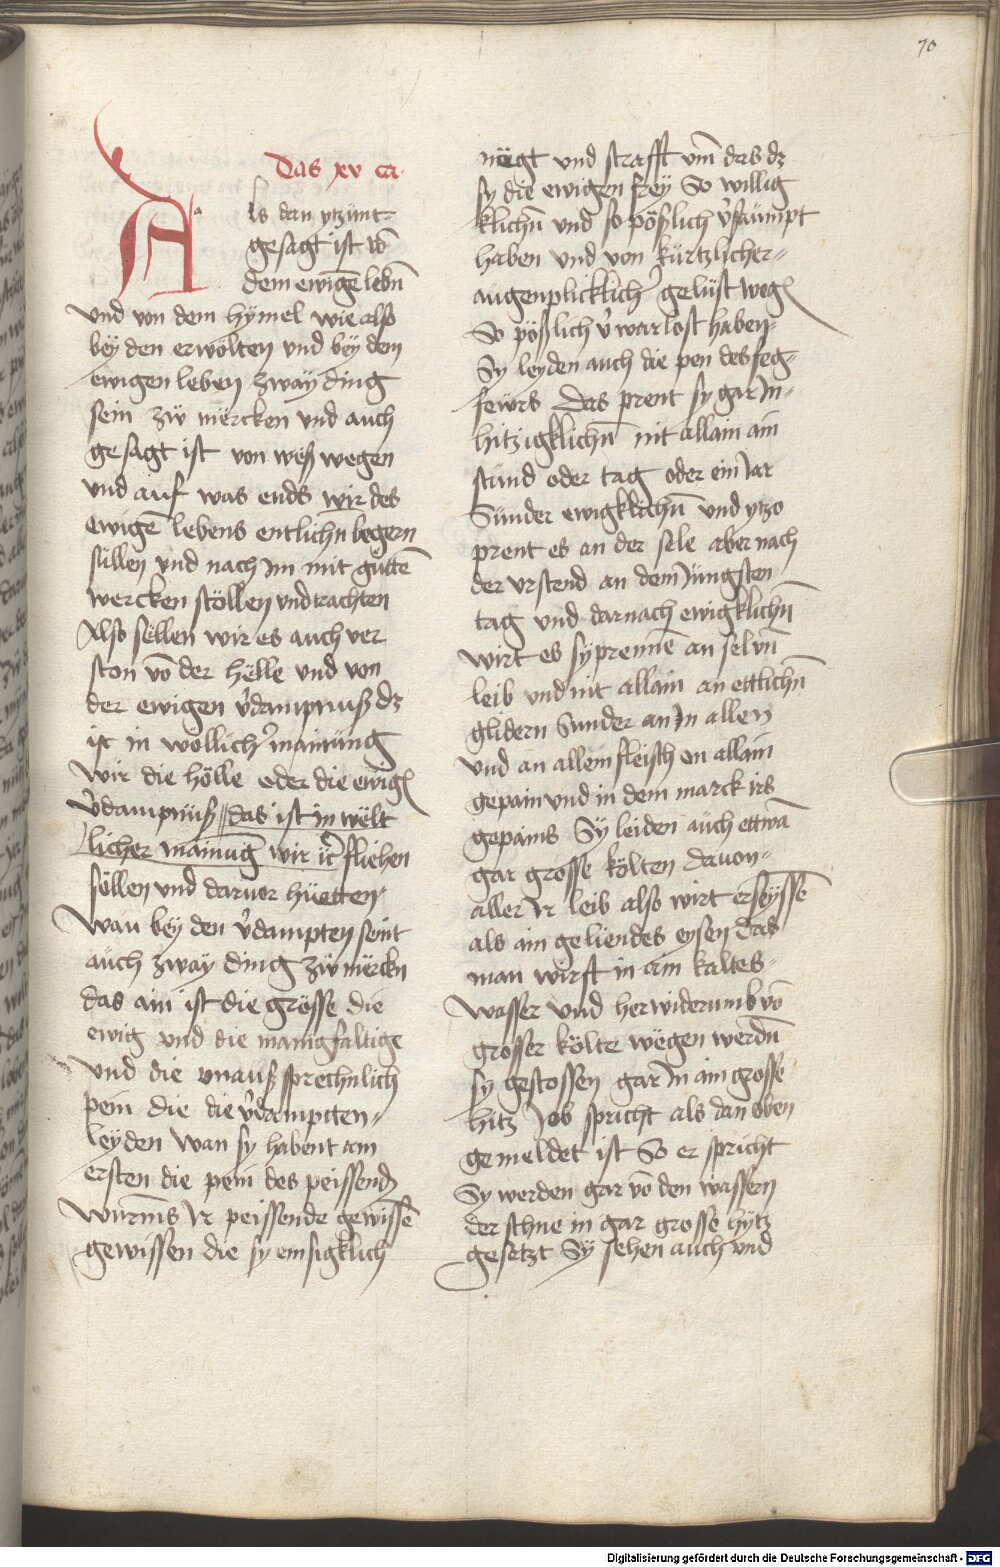 70
Das xv ca.
Als dan ytzünt
gesagt ist võ
dem ewigẽ lebñ
und von dem hÿmel wie also
beÿ den erwölten und beÿ dem
ewigen leben zwaÿ ding
sein zw mërcken und auch
gesagt ist von weß wegen
und auf was ends wir des
ewigẽ lebens entlichñ begern
süllen und nach im mit guttẽ
wercken stöllen und trachten
Also söllen wir es auch ver
ston võ der hëlle und von
der ewigen v̉dampnuß dz
ist in wöllich̉ mainüng
wir die hölle oder die ewig
v̉dampnüß das ist in wëlt
licher mainug̃ wir fliehen
söllen und daruor hüetten
Wan beÿ den v̉dampten seint
auch zwaÿ ding zw mërckn
das ain ist die grösse die
ewig und die manigfaltige
und die unaußsprechnlich
pein die die v̉dampten
leÿden Wan sy habent am
ersten die pein des peissend
wurm̃s Ir peissende gewissẽ
gewissen die sy emsigklich
nëgt und strafft vm̃ das dz
sy die ewigen freÿ So willig
klichñ und so pößlich v̉säumpt
haben und von kürtzlicher
augenplicklich̉ gelüst weg
So pößlich v̉warlost haben
Sy leyden auch die pen des feg
fewrs Das prent sy gar In
hitzigklichñ nit allain ain
stund oder tag oder ein Jar
Sünder ewigklichñ und ytzo
prent es an der sele aber nach
der urstend an dem Jüngsten
tag und darnach ewigklichñ
wirt es sy prennẽ an sel vñ
leib und nit allain an ettlichñ
glidern Sunder an In allen
und an allem fleisch en allain
gepain und in dem marck irs
gepains Sÿ leiden auch ettwã
gar grosse költen dauon
aller Ir leib also wirt erseÿssẽ
als ain geliendes eysen das
man wirft in ain kaltes
wasser und herwiderumb võ
grosser költe wëgen werdñ
sy gestossen gar In ain grosse
hitz Job spricht als dan oben
gemeldet ist So er spricht
Sy werden gar võ den wassern
der schne in gar grosse hÿtz
gesetzt Sÿ sehen auch und
Digitalisierung gefördert durch die Deutsche Forschungsgemeinschaft - DFG